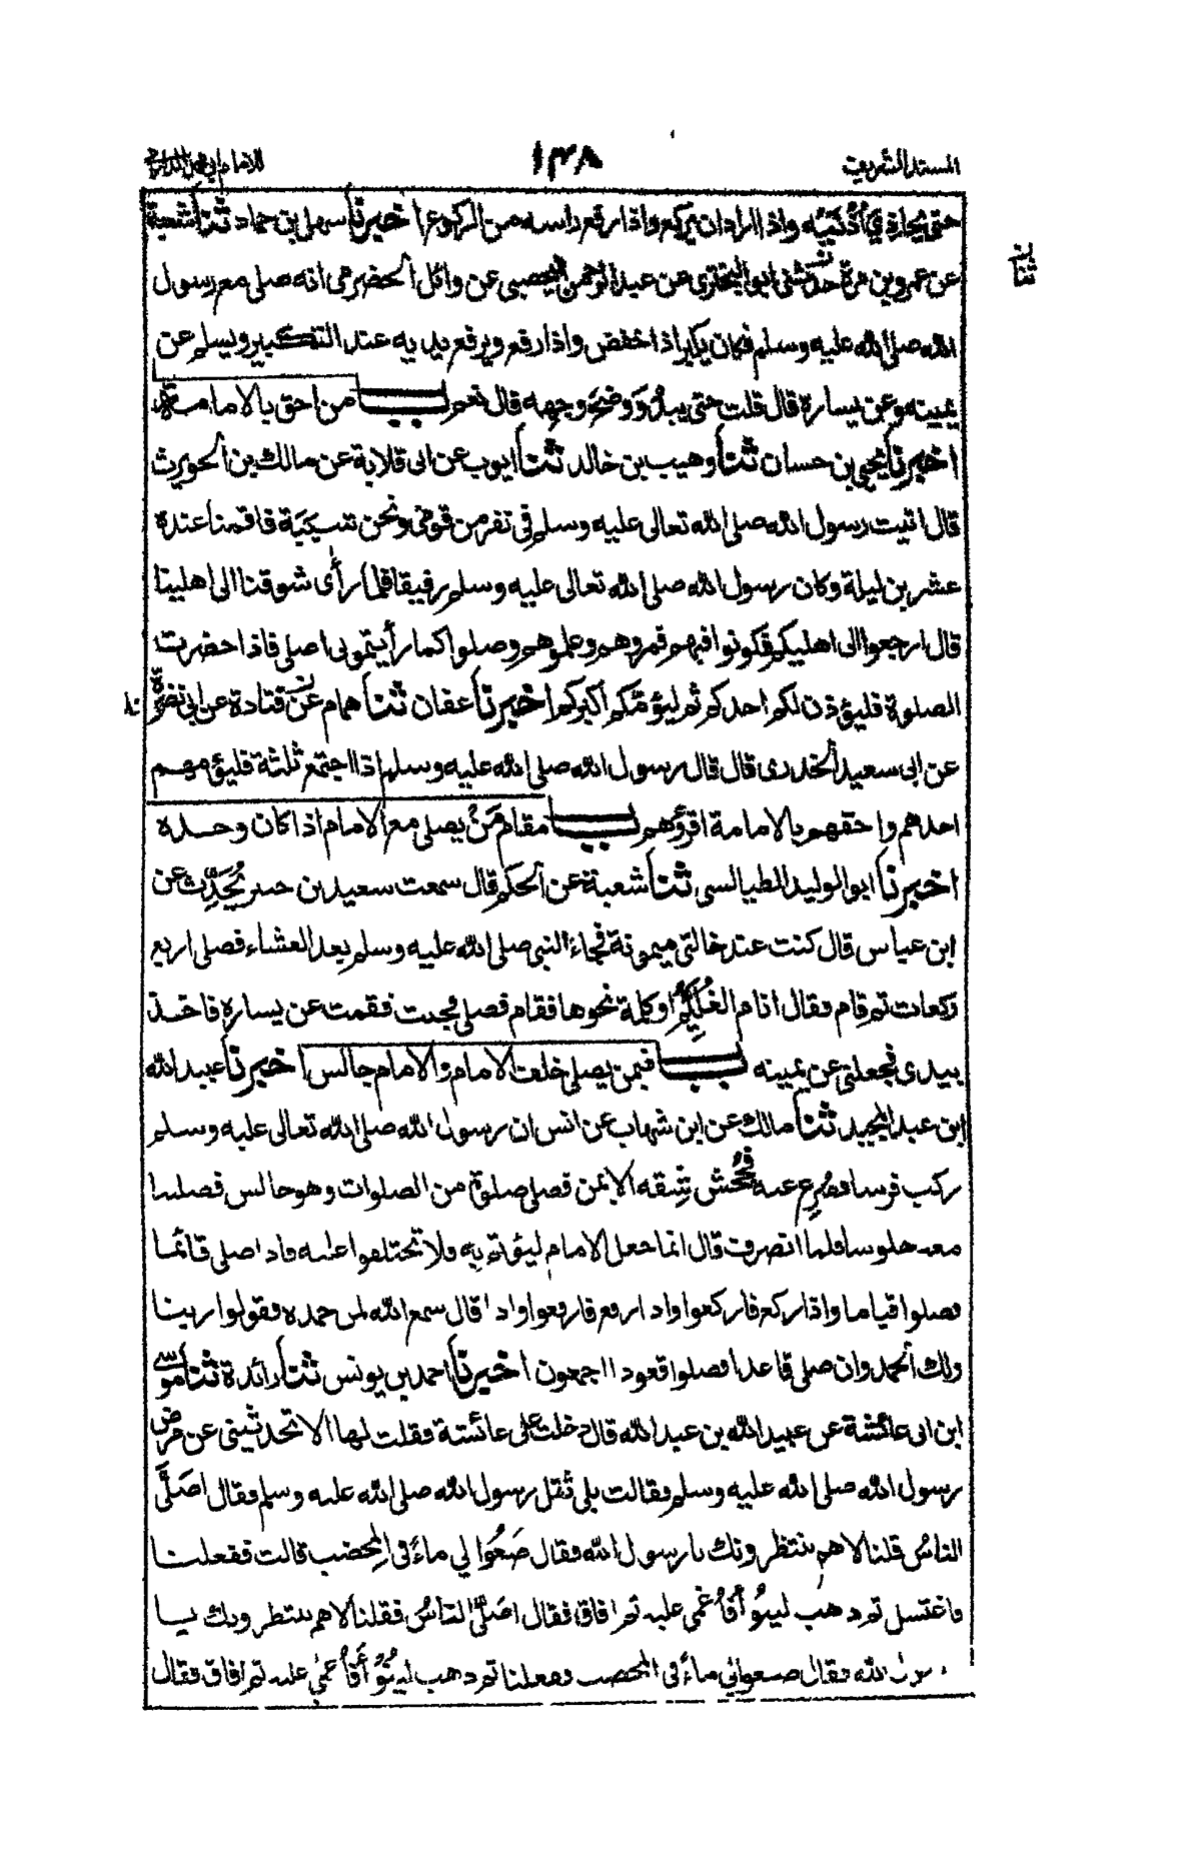 المسند الشريف ١٣٨ للامام ابي محمد الدارمي
حتى يحاذي أُذُنَيْه واذا اراد ان يركع واذا رفع راسه من الركوع اخبرنا سهل بن حماد ثنا شعبة
عن عمرو بن مرة حدثنى ابو البخترى عن عبد الرحمن اليحصبى عن وائل الحضرمى انه صلى مع رسول
ثنا ن
الله صلى الله عليه وسلم فكان يكبر اذا خفض واذا رفع ويرفع يديه عند التكبير ويسلم عن
يمينه وعن يساره قال قلت حتى يبدُوَ وضَحُ وجهه قال نعم باب من احق بالامامة
اخبرنا يحيى بن حسان ثنا وهيب بن خالد ثنا ايوب عن ابى قلابة عن مالك بن الحويرث
قال اتيت رسول الله صلى الله تعالى عليه وسلم في نفر من قومي ونحن شَبَبَة فاقمنا عنده
عشرين ليلة وكان رسول الله صلى الله تعالى عليه وسلم رفيقا فلما رأى شوقنا الى اهلينا
قال ارجعوا الى اهليكم فكونوا فيهم فمروهم وعلموهم وصلوا كما رأيتمونى اصلى فاذا حضرت
الصلوة فليؤذن لكم احدكم ثم ليؤمَّكم اكبركم اخبرنا عفان ثنا همام عن قتادة عن ابي نضرة
عن ابى سعيد الخدرى قال قال رسول الله صلى الله عليه وسلم اذا اجتمع ثلثة فليؤمهم
احدهم واحقهم بالامامة اقرؤهم باب مقام مَنْ يصلى مع الامام اذا كان وحده
اخبرنا ابو الوليد الطيالسى ثنا شعبة عن الحكم قال سمعت سعيد بن جبير يُحَدِّث عن
ابن عباس قال كنت عند خالتي ميمونة فجاء النبي صلى الله عليه وسلم بعد العشاء فصلى اربع
ركعات ثم قام فقال انام الغُلَيِّمُ او كلمة نحوها فقام فصلى فجئت فقمت عن يساره فاخذ
بيدى فجعلني عن يمينه باب فيمن يصلى خلف الامام والامام جالس اخبرنا عبيد الله
ابن عبد المجيد ثنا مالك عن ابن شهاب عن انس ان رسول الله صلى الله تعالى عليه وسلم
ركب فرسا فصُرِع عنه فجُحِش شِقه الايمن فصلى صلوة من الصلوات وهو جالس فصلينا
معه جلوسا فلما انصرف قال انما جعل الامام ليؤتم به فلا تختلفوا عليه فاذا صلى قائما
فصلوا قياما واذا ركع فاركعوا واذا رفع فارفعوا واذا قال سمع الله لمن حمده فقولوا ربنا
ولك الحمد وان صلى قاعدا فصلوا قعودا اجمعون اخبرنا احمد بن يونس ثنا زائدة ثنا موسى
ابن ابى عائشة عن عبيد الله بن عبد الله قال دخلت على عائشة فقلت لها الا تحدثينى عن مرض
رسول الله صلى الله عليه وسلم فقالت بلى ثقل رسول الله صلى الله عليه وسلم فقال اَصَلَّى
الناسُ قلنا لا هم ينتظرونك يا رسول الله فقال ضَعُوا لي ماءً فى المِخضب قالت ففعلنا
فاغتسل ثم ذهب لينُوءَ فأُغمي عليه ثم افاق فقال اَصَلَّى الناسُ فقلنا لا هم ينتظرونك يا
رسول الله فقال ضعوا لي ماءً فى المخضب ففعلنا ثم ذهب لينُوءَ فأُغمي عليه ثم افاق فقال